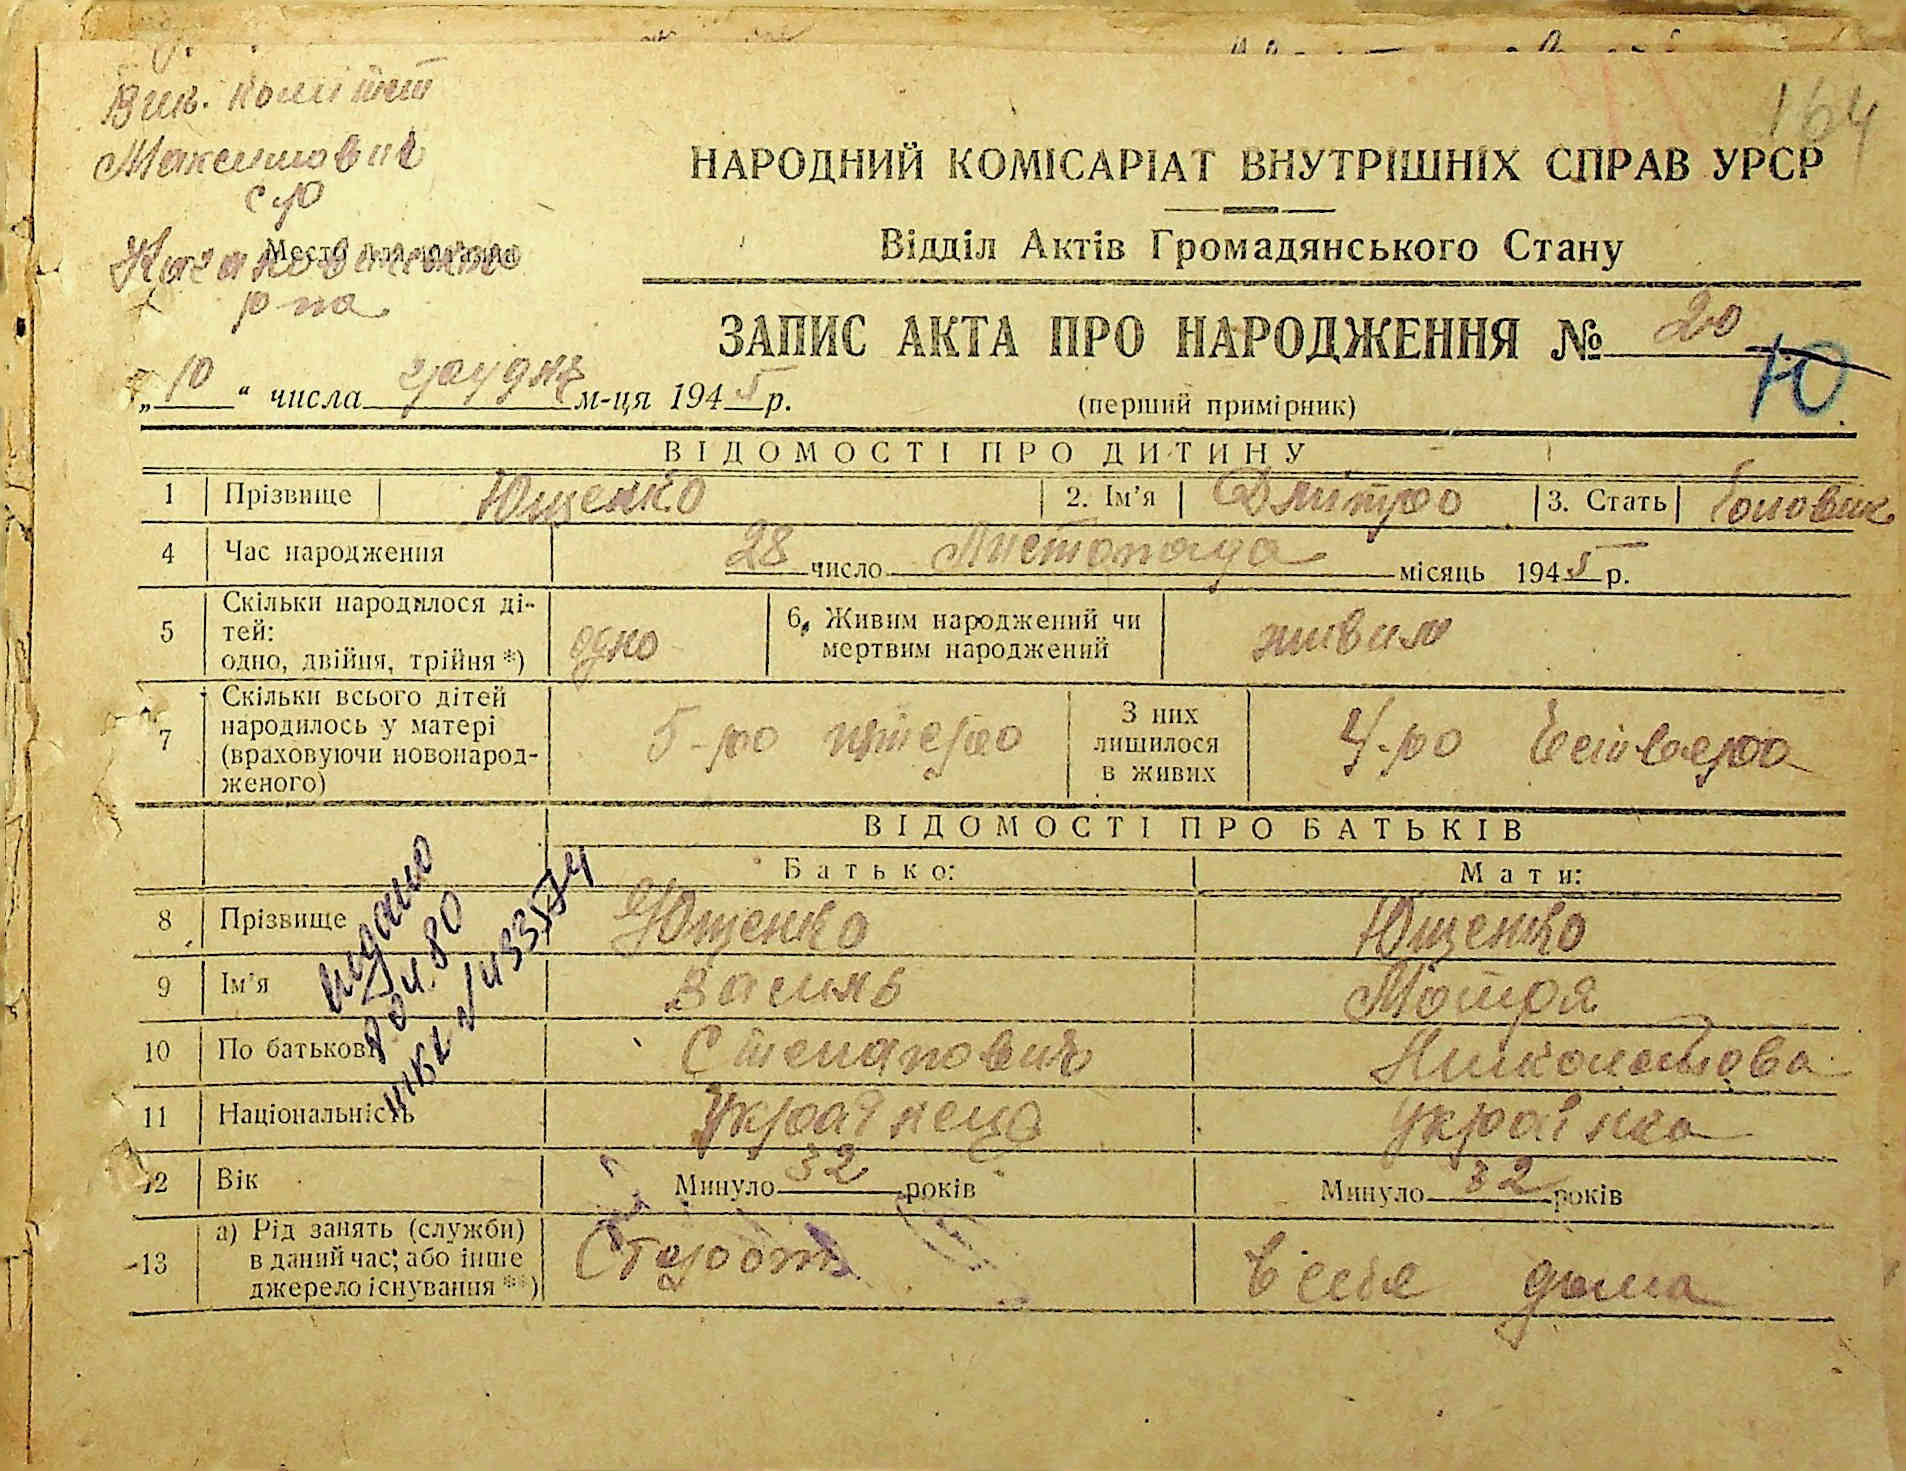 164
Вик. комітет
Максимович
с/р
Кагановичского
р-на
Место для печати
НАРОДНИЙ КОМІСАРІАТ ВНУТРІШНІХ СПРАВ УРСР
Відділ Актів Громадянського Стану
ЗАПИС АКТА ПРО НАРОДЖЕННЯ № 20
Ю
„ 10 “ числа грудня м-ця 1945 р.
(перший примірник)
ВІДОМОСТІ ПРО ДИТИНУ
1 Прізвище Ющенко 2. Ім'я Дмитро 3. Стать Чоловік
4 Час народження 28 число Листопада місяць 1945 р.
5 Скільки народилося ді-
тей:
одно, двійня, трійня *) одно 6. Живим народжений чи
мертвим народжений живим
7 Скільки всього дітей
народилось у матері
(враховуючи новонарод-
женого) 5-ро пятеро З них
лишилося
в живих 4-ро Четверо
ВІДОМОСТІ ПРО БАТЬКІВ
Батько: Мати:
8 Прізвище Ющенко Ющенко
9 Ім'я Василь Мотря
10 По батькові Степанович
11 Національність Українець Українка
12 Вік Минуло 32 років Минуло 32 років
13 а) Рід занять (служби)
в даний час, або інше
джерело існування **) в себе дома
видано